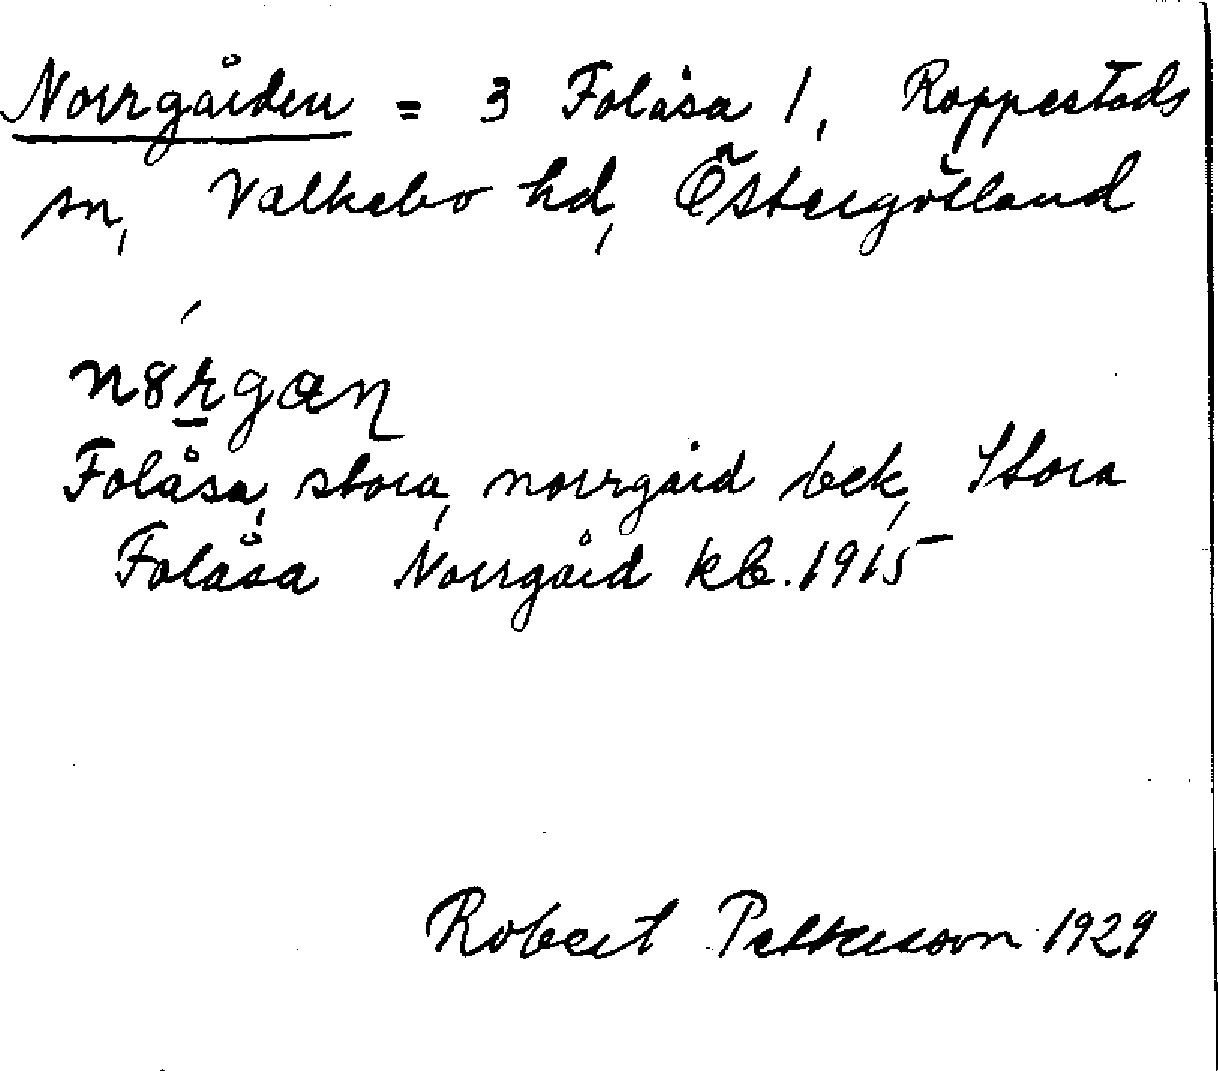 Norrgården = 3 Folåsa 1, Rappestads
sn, Valkebo hd, Östergötland
n8rgan
Folåsa, stora, norrgård bek, Stora
Folåsa Norrgård kb. 1915
Robert Pettersson 1929